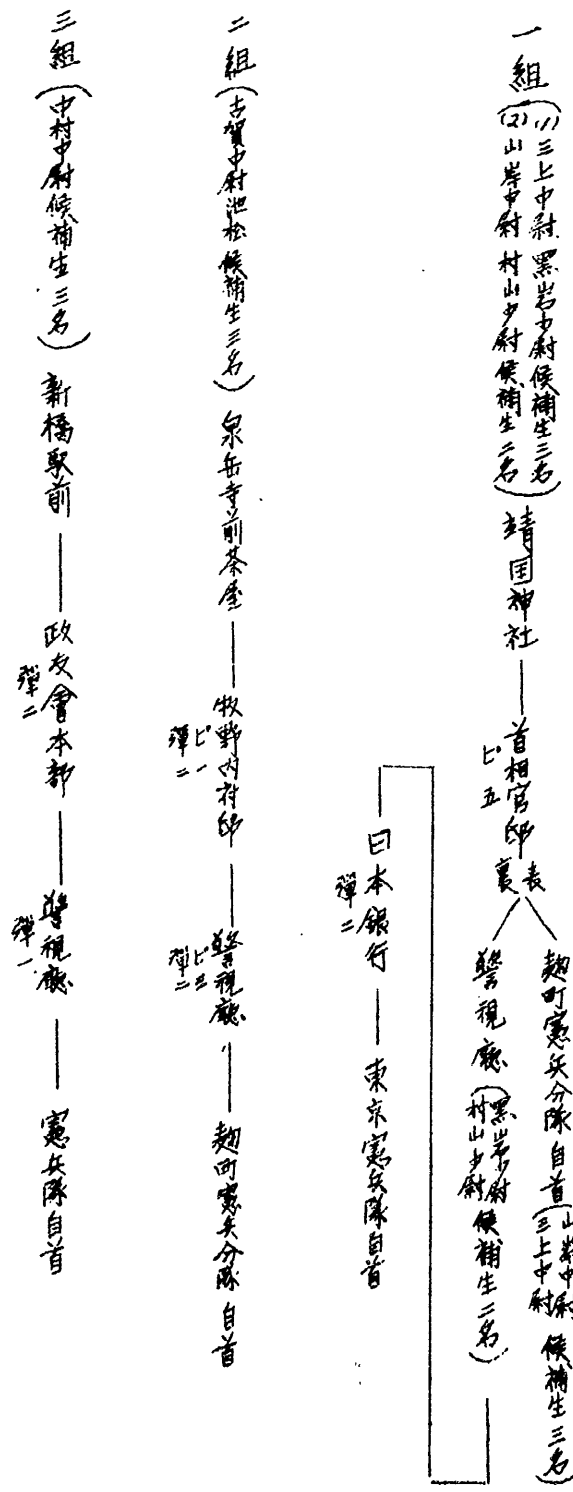 一組
(1)三上中尉 黒岩少尉 候補生三名
(2)山岸中尉 村山少尉 候補生二名
靖国神社
首相官邸
ピ五
表
裏
麹町憲兵分隊 自首
(山岸中尉
三上中尉 候補生三名)
警視廳
(黒岩少尉
村山少尉 候補生二名)
日本銀行
弾二
東京憲兵隊自首
二組(古賀中尉 池松 候補生三名)泉岳寺前茶屋
牧野内府邸
ピ一
弾二
警視廳
ピ三
弾二
麹町憲兵分隊 自首
三組(中村中尉 候補生三名)新橋駅前
政友會本部
弾二
警視廳
弾一
憲兵隊自首